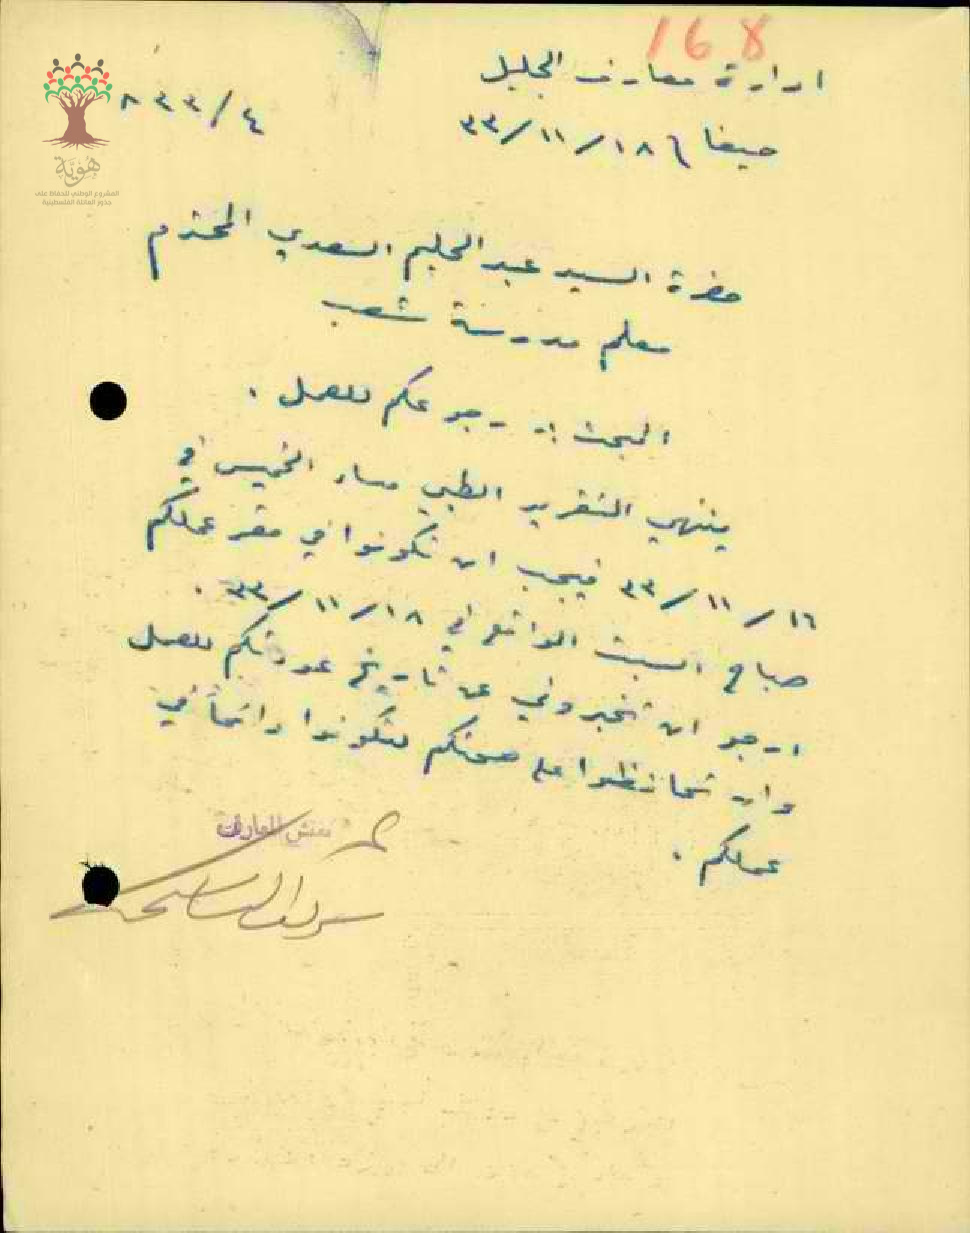 168
ادارة معارف الجليل
حيفا ١٨/١١/٣٣
٨٣٣/٤
هوية
المشروع الوطني للحفاظ على
جذور العائلة الفلسطينية
حضرة السيد عبد الحليم السعدي المحترم
معلم مدرسة شعب
البحث :- رجوعكم للعمل .
ينتهي التقرير الطبي مساء الخميس في
١٦/١١/٣٣ فيجب ان تكونوا في مقر عملكم
صباح السبت الواقع في ١٨/١١/٣٣ .
ارجو ان تخبروني عن تاريخ عودتكم للعمل
وان تحافظوا على صحتكم لتكونوا دائماً في
عملكم .
مفتش المعارف